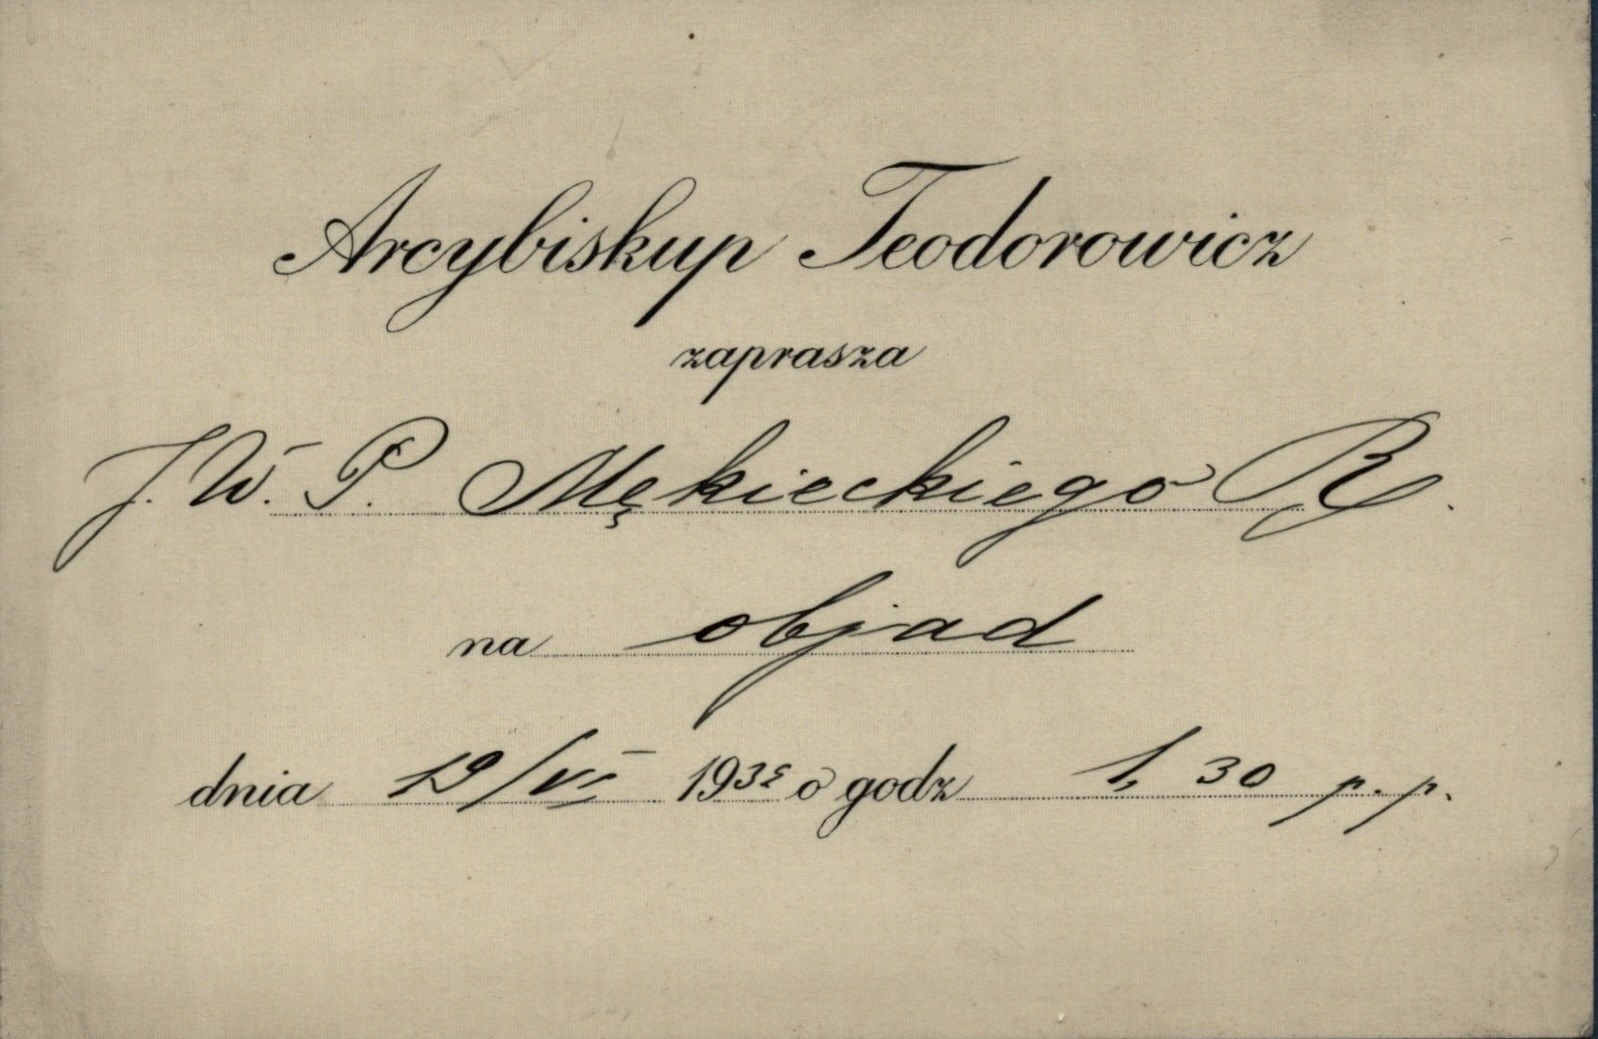 Arcybiskup Teodorowicz
zaprasza
J. W. P. Mękieckiego R.
na objad
dnia 19/VI 1935 o godz 1, 30 p. p.